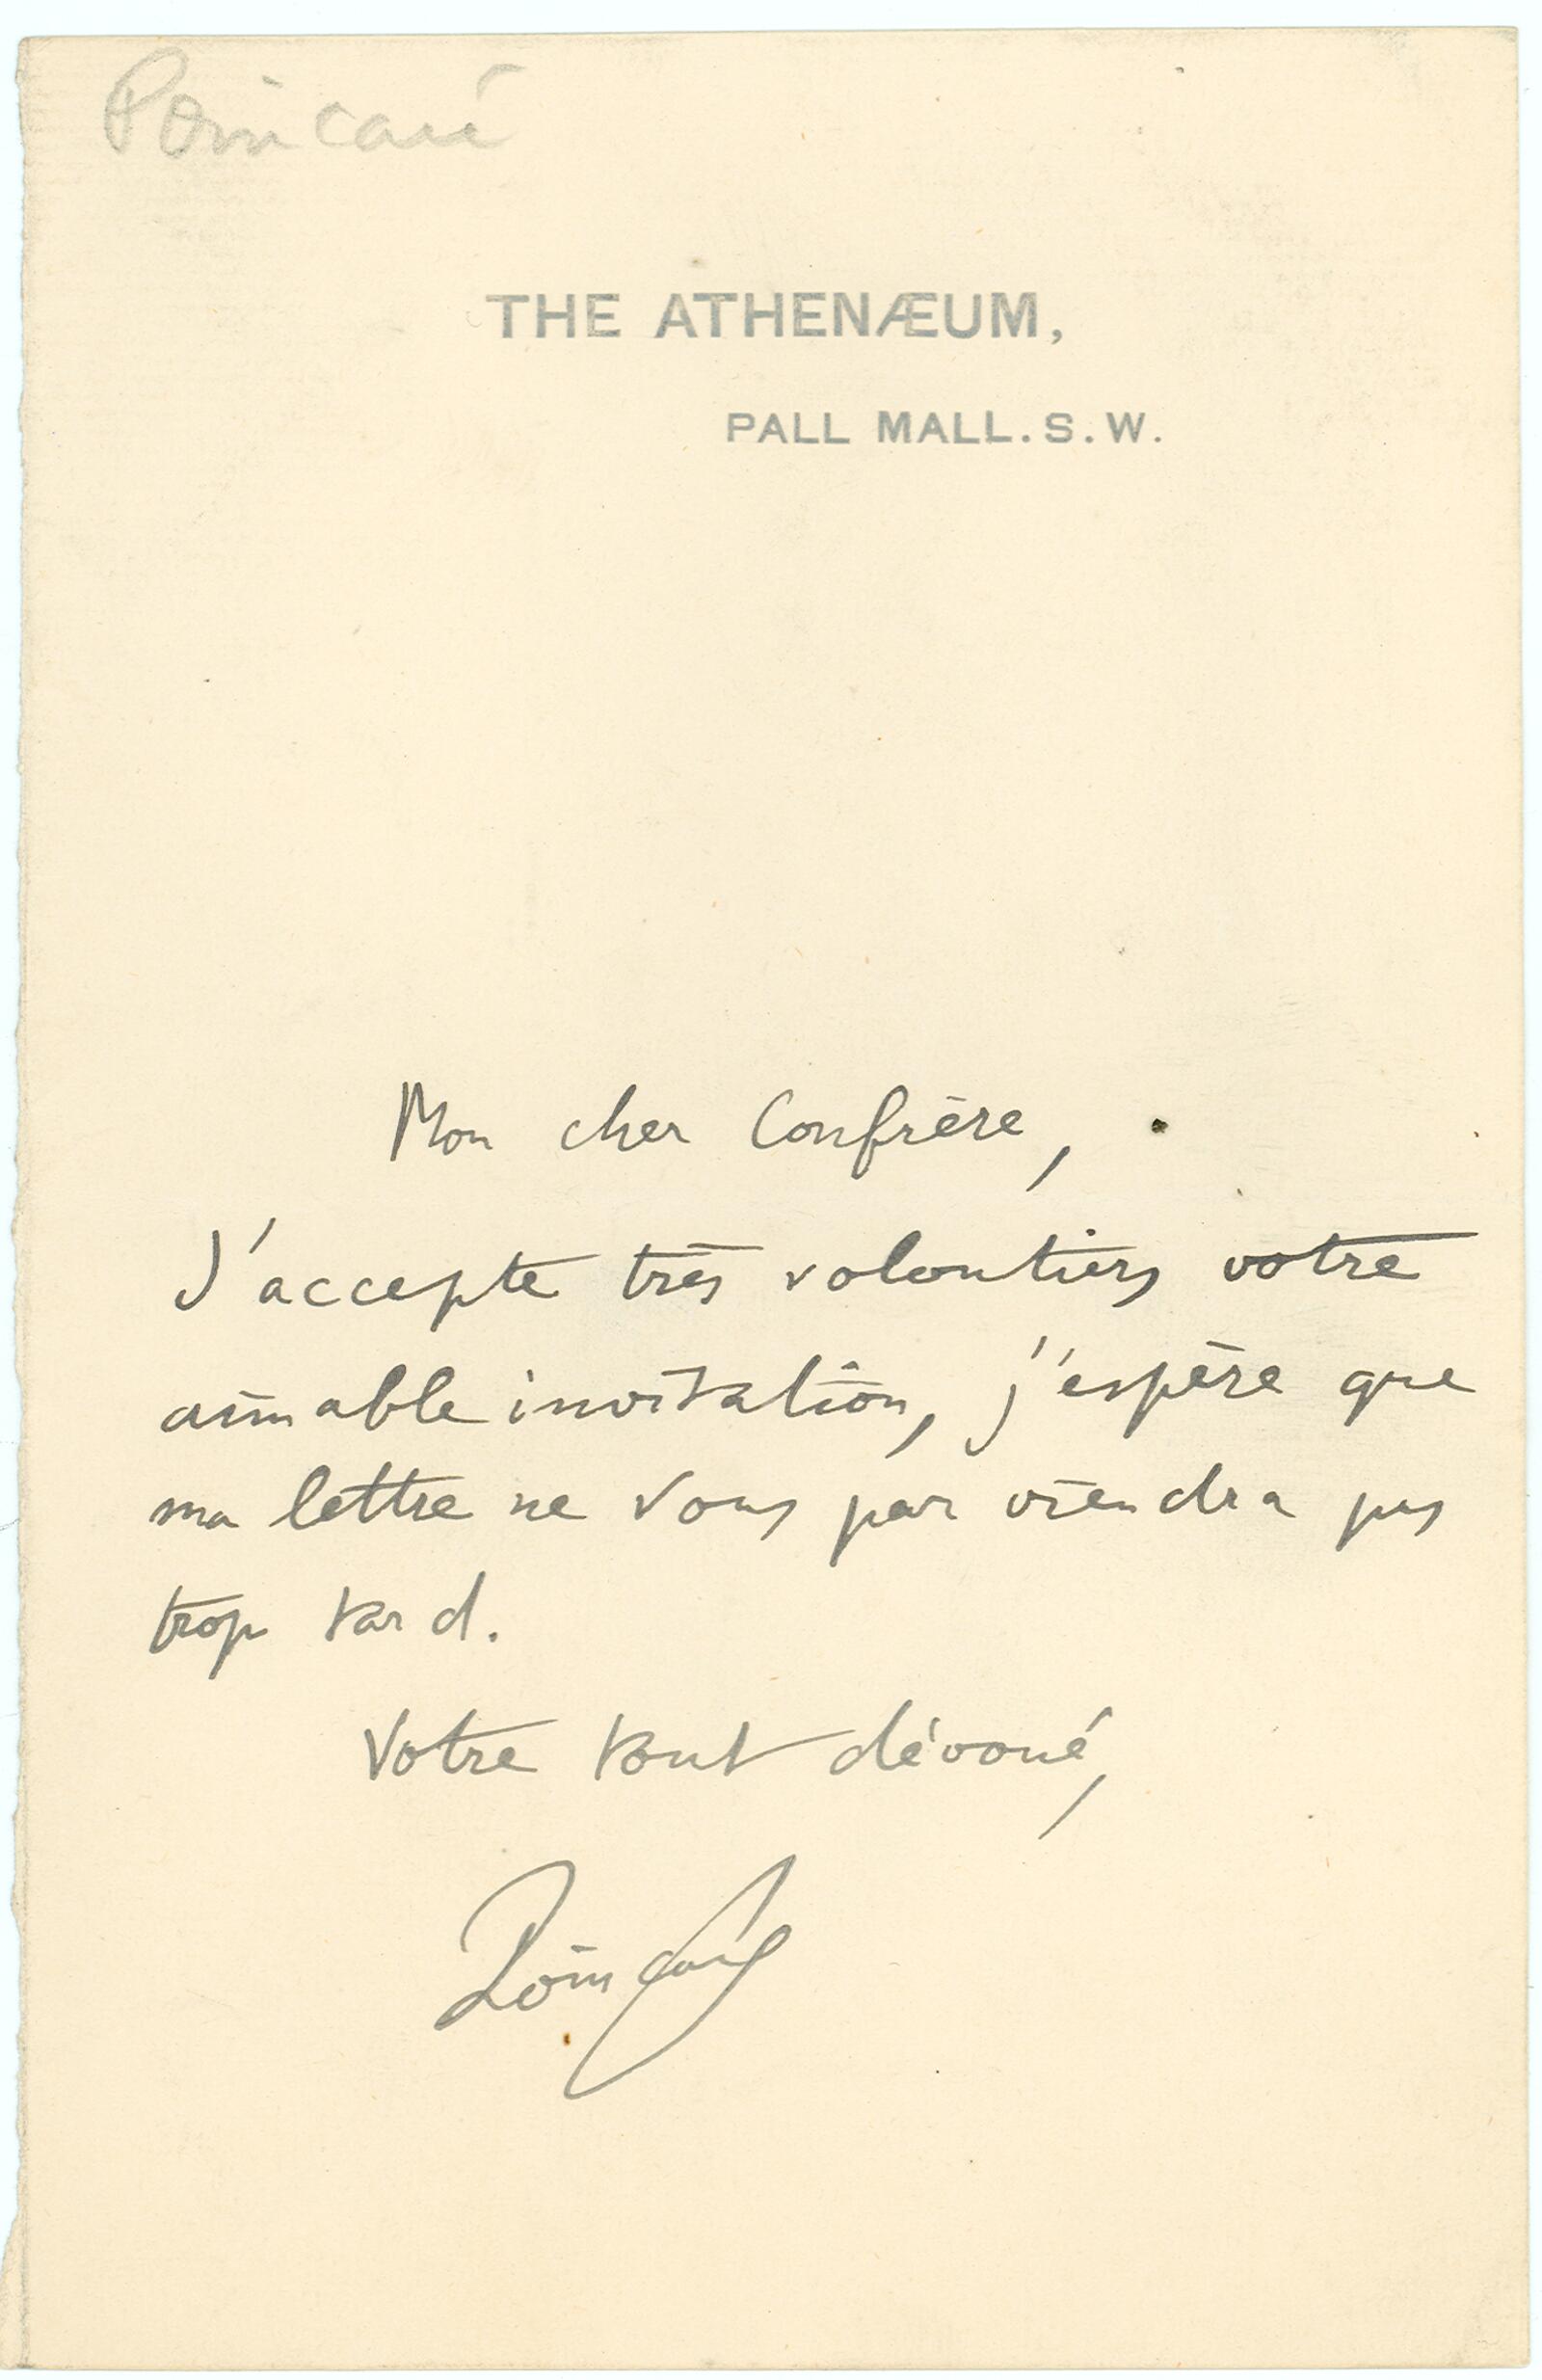 Poincaré
THE ATHENÆUM,
PALL MALL. S. W.
Mon cher Confrère,
J'accepte très volontiers votre
aimable invitation, j'espère que
ma lettre ne vous parviendra pas
trop tard.
Votre tout dévoué,
Poincaré